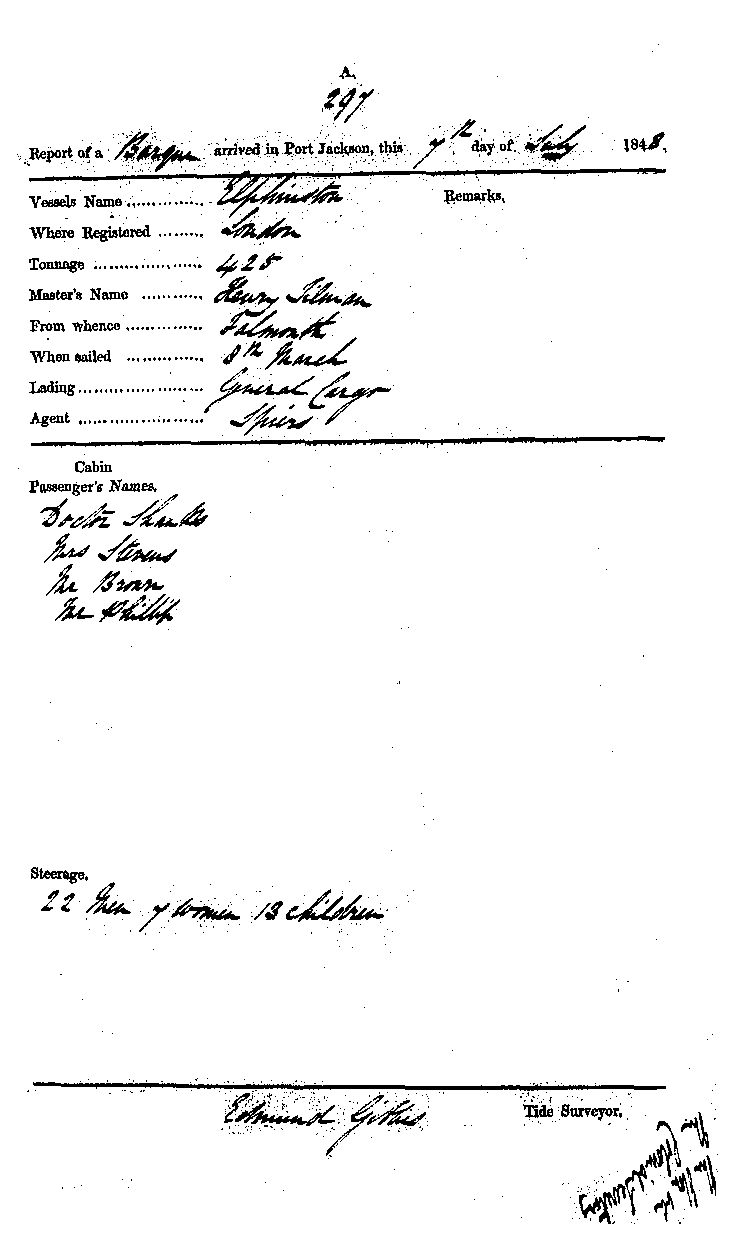 A.
297
Report of a Barque arrived in Port Jackson, this 7th day of July 1848.
Vessels Name .............. Elphinston
Remarks,
Where Registered ......... London
Tonnage ..................... 425
Master's Name ............ Henry Tilman
From whence ............... Falmouth
When sailed ............... 8th March
Lading ........................ General Cargo
Agent ........................ Spiers
Cabin
Passenger's Names.
Doctor Shanks
Mrs Stevens
Mr Brown
Mr Phillip
Steerage.
22 Men 7 women 13 children
Edmund Gibbes Tide Surveyor.